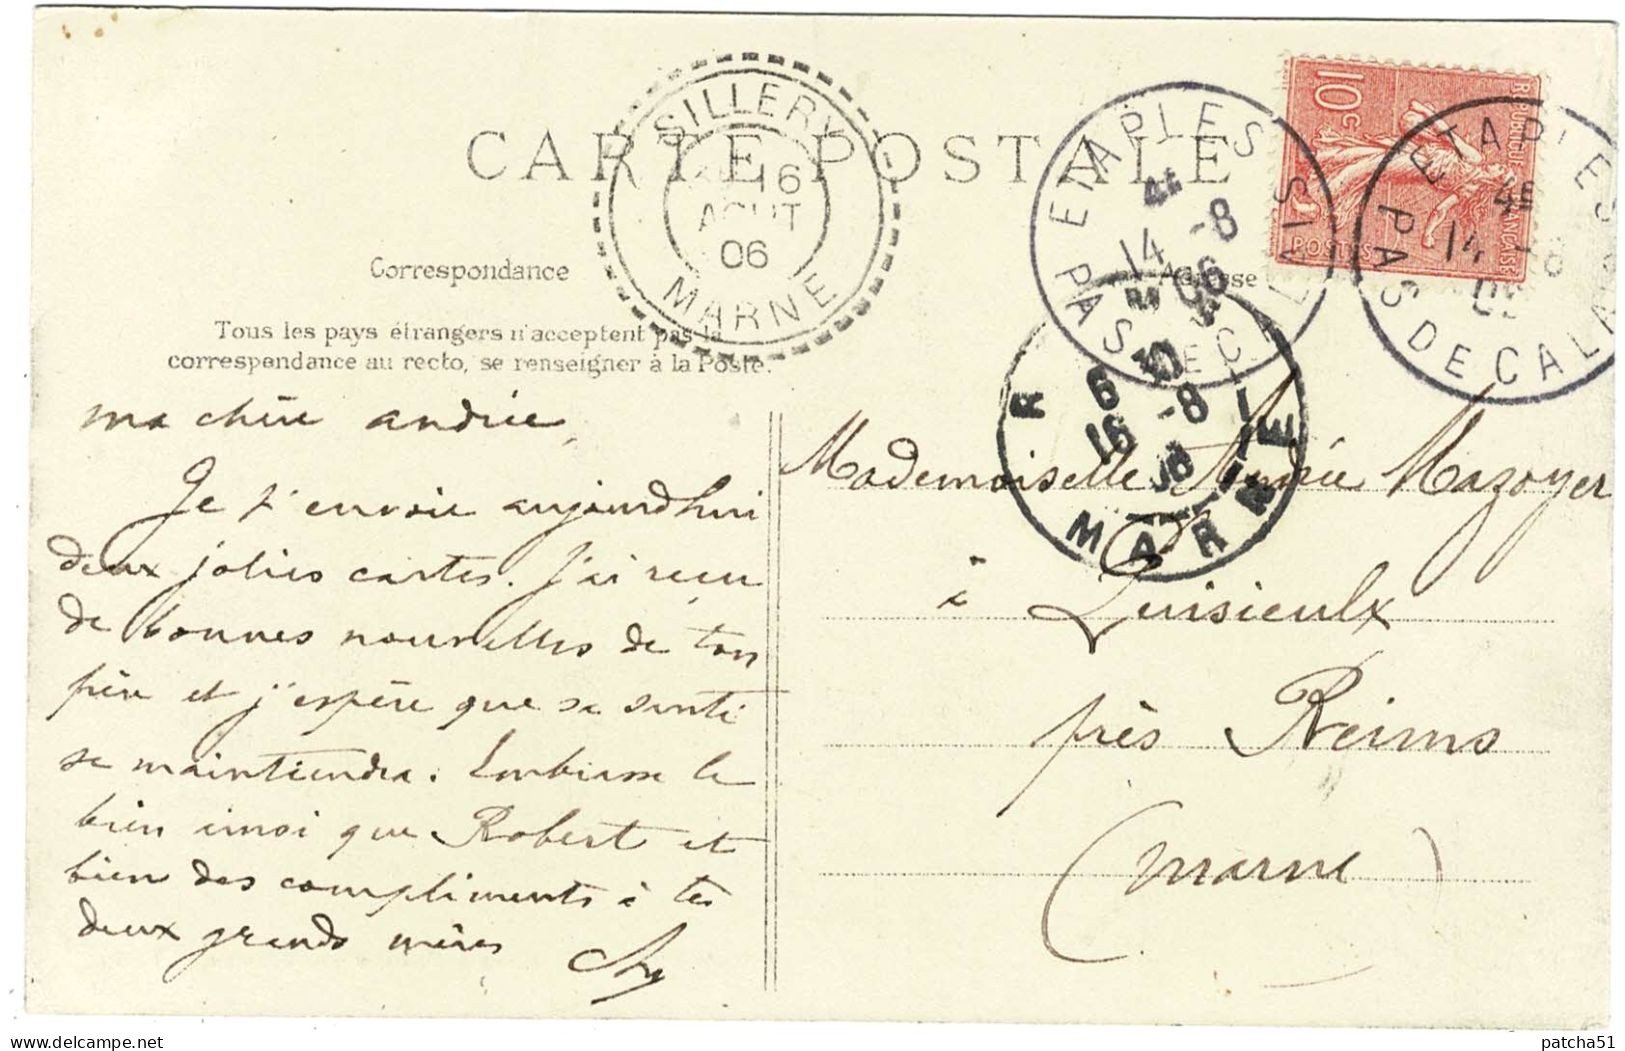 CARTE POSTALE
Correspondance
Adresse
Tous les pays étrangers n'acceptent pas la
correspondance au recto, se renseigner à la Poste.
SILLERY
16
AOUT
06
MARNE
ETAPLES
14 -8
06
PAS DE C
10c
REPUBLIQUE FRANÇAISE
POSTES
ETAPLES
14
PAS DE CALA
6
16 -8
MARNE
ma chère andrée,
Je t'envoie aujourd'hui
deux jolies cartes. J'ai reçu
de bonnes nouvelles de ton
père et j'espère que sa santé
se maintiendra. Embrasse le
bien imoi que Robert et
bien des compliments à tes
deux grands mères
Mademoiselle Andrée Mazoyer
à Puisieulx
près Reims
(Marne)
delcampe.net
patcha51